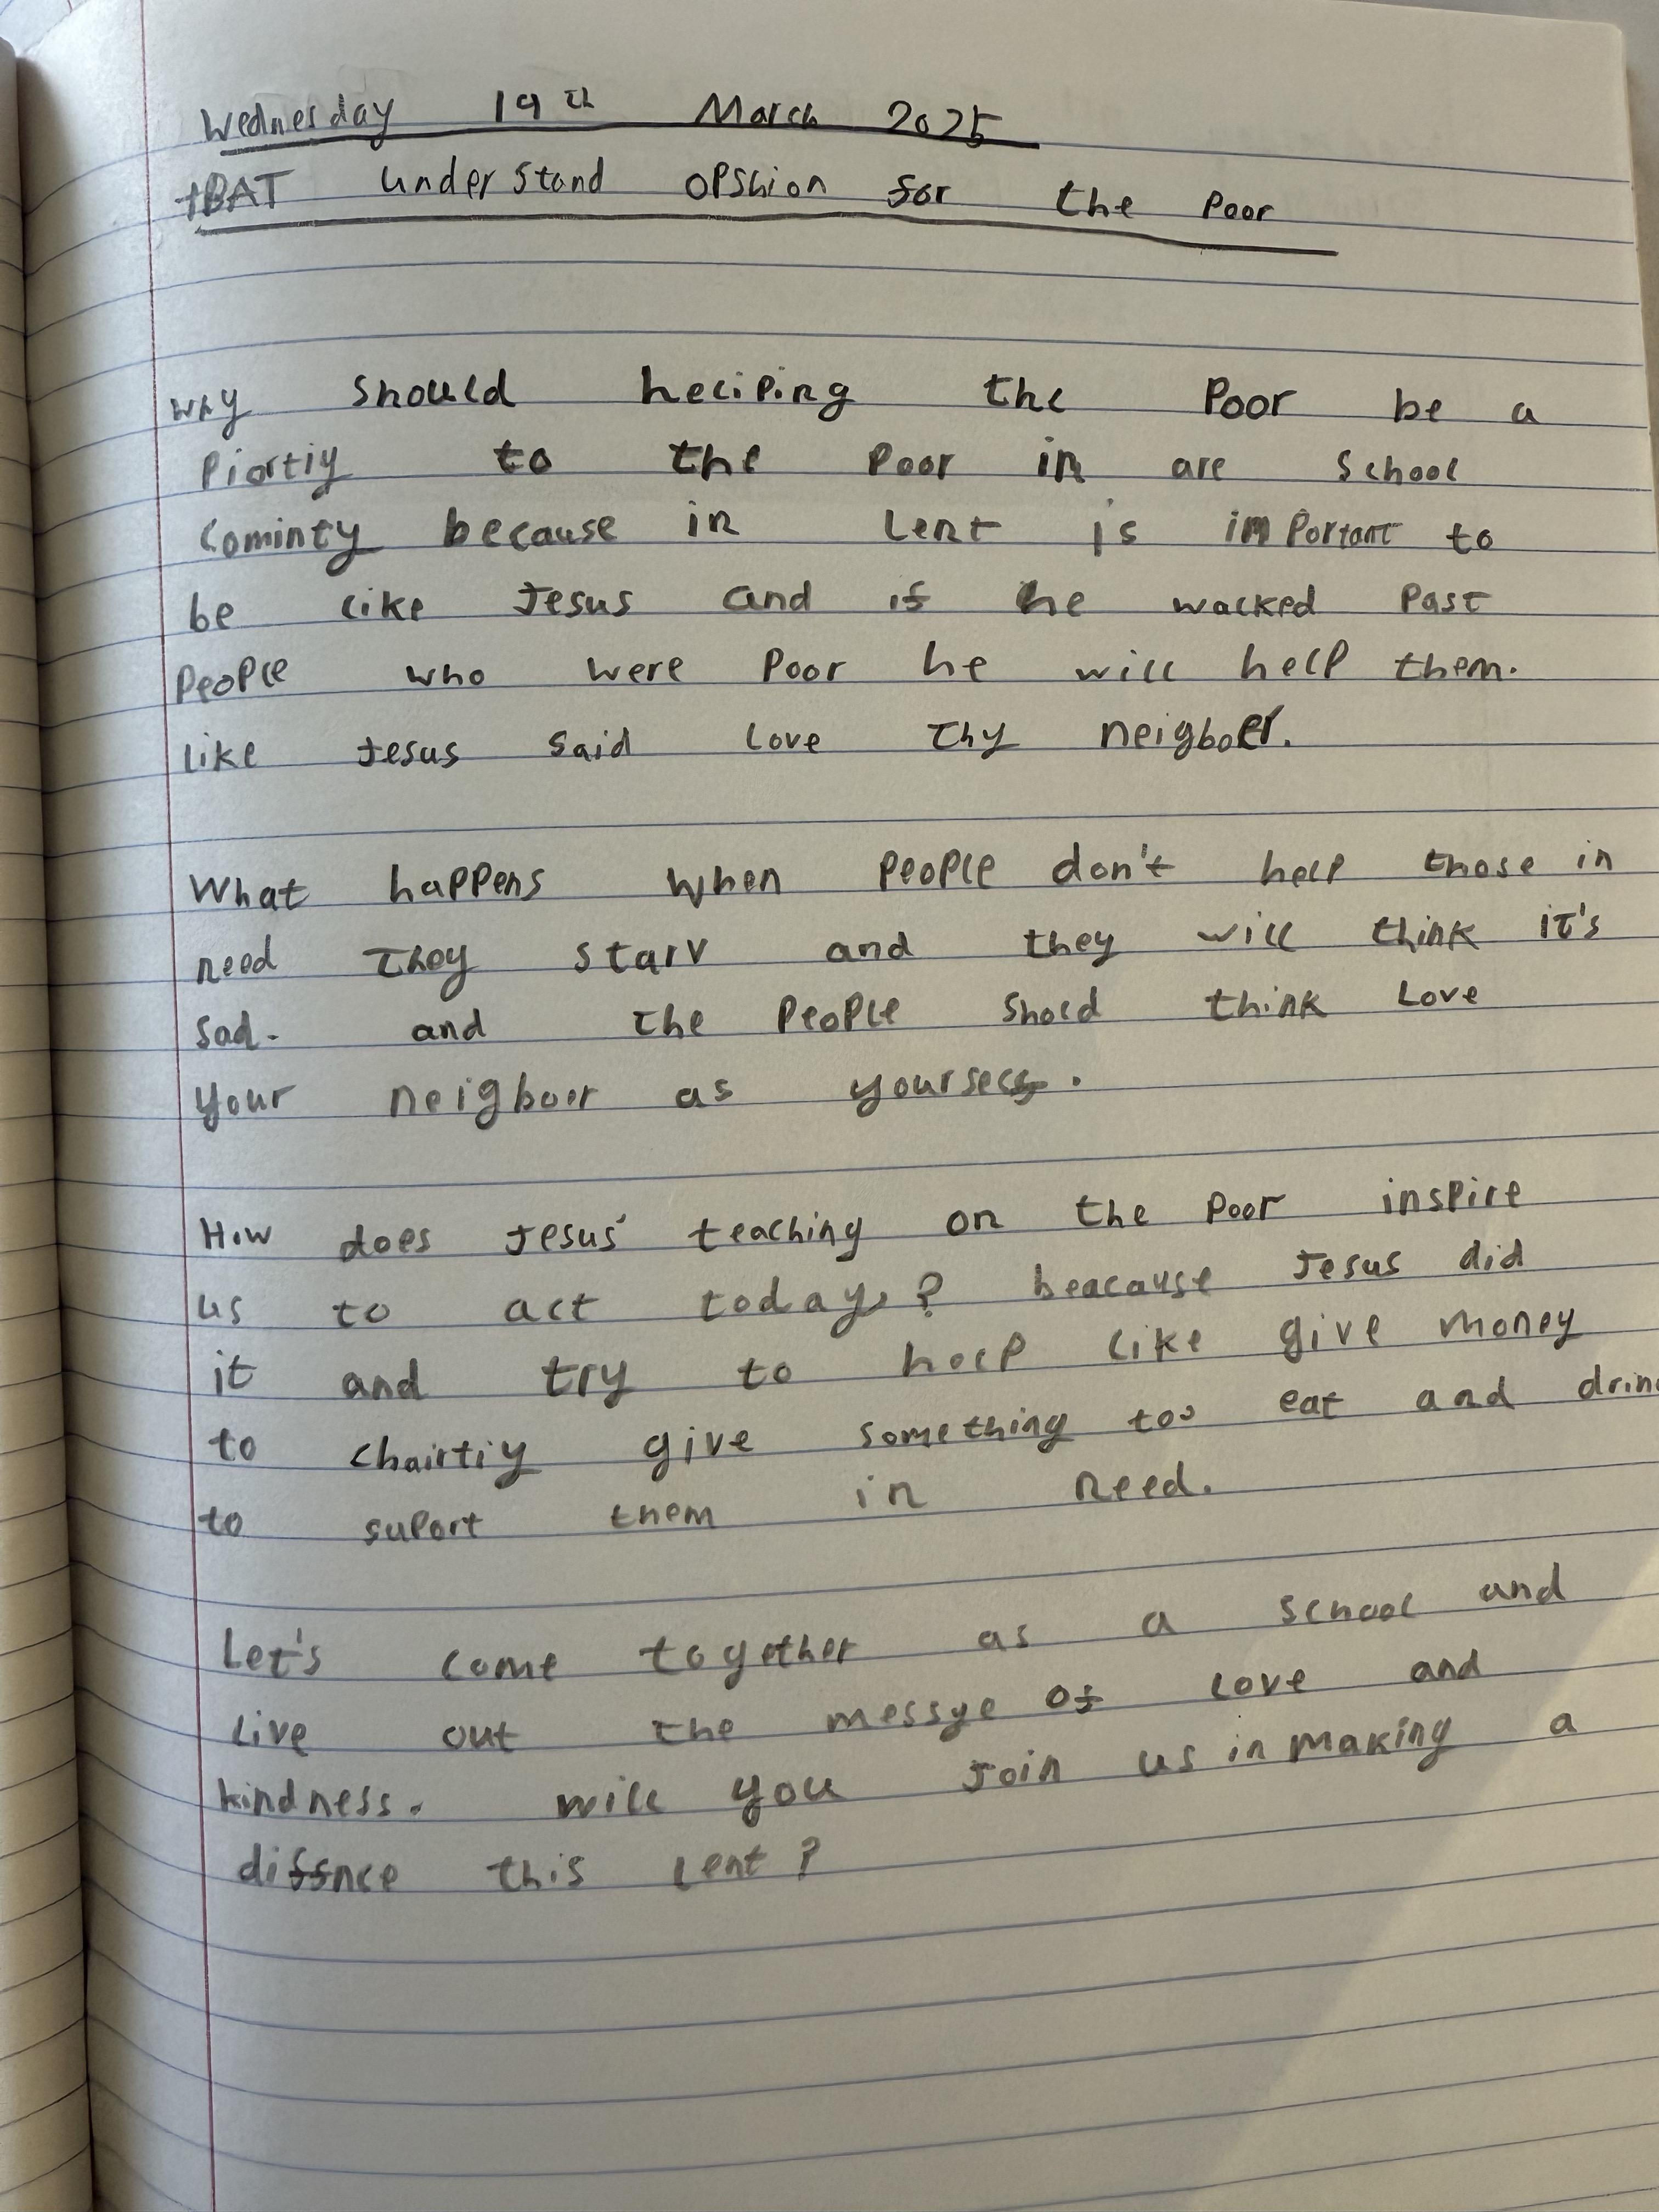 Wednesday 19th March 2025
tBAT understand opshion for the poor
why should helping the Poor be a
Piortiy to the Poor in are School
Cominty because in Lent is important to
be like Jesus and if he walked Past
People who were Poor he will help them.
like Jesus said love thy neigboer.
What happens when people don't help those in
need They starv and they will think it's
sad. and the PeoPle Shold think Love
your neigboer as yourself.
How does Jesus' teaching on the poor inspire
us to act today? beacause Jesus did
it and try to help like give money
to chairtiy give something too eat and
to suport them in need.
Let's come together as a school and
live out the messye of love and
kindness. will you Join us in making a
diffnce this lent?